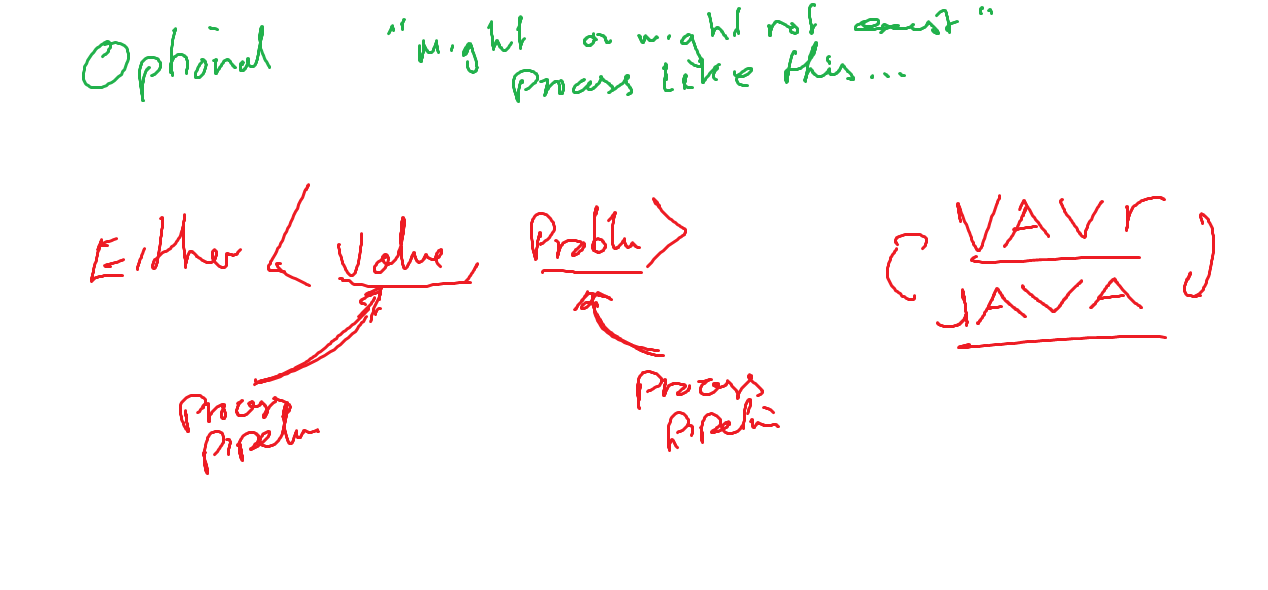 Optional "Might or might not exist"
Process like this...
Either < Value, Problem > ( VAVr
JAVA )
Process
pipeline
Process
pipeline